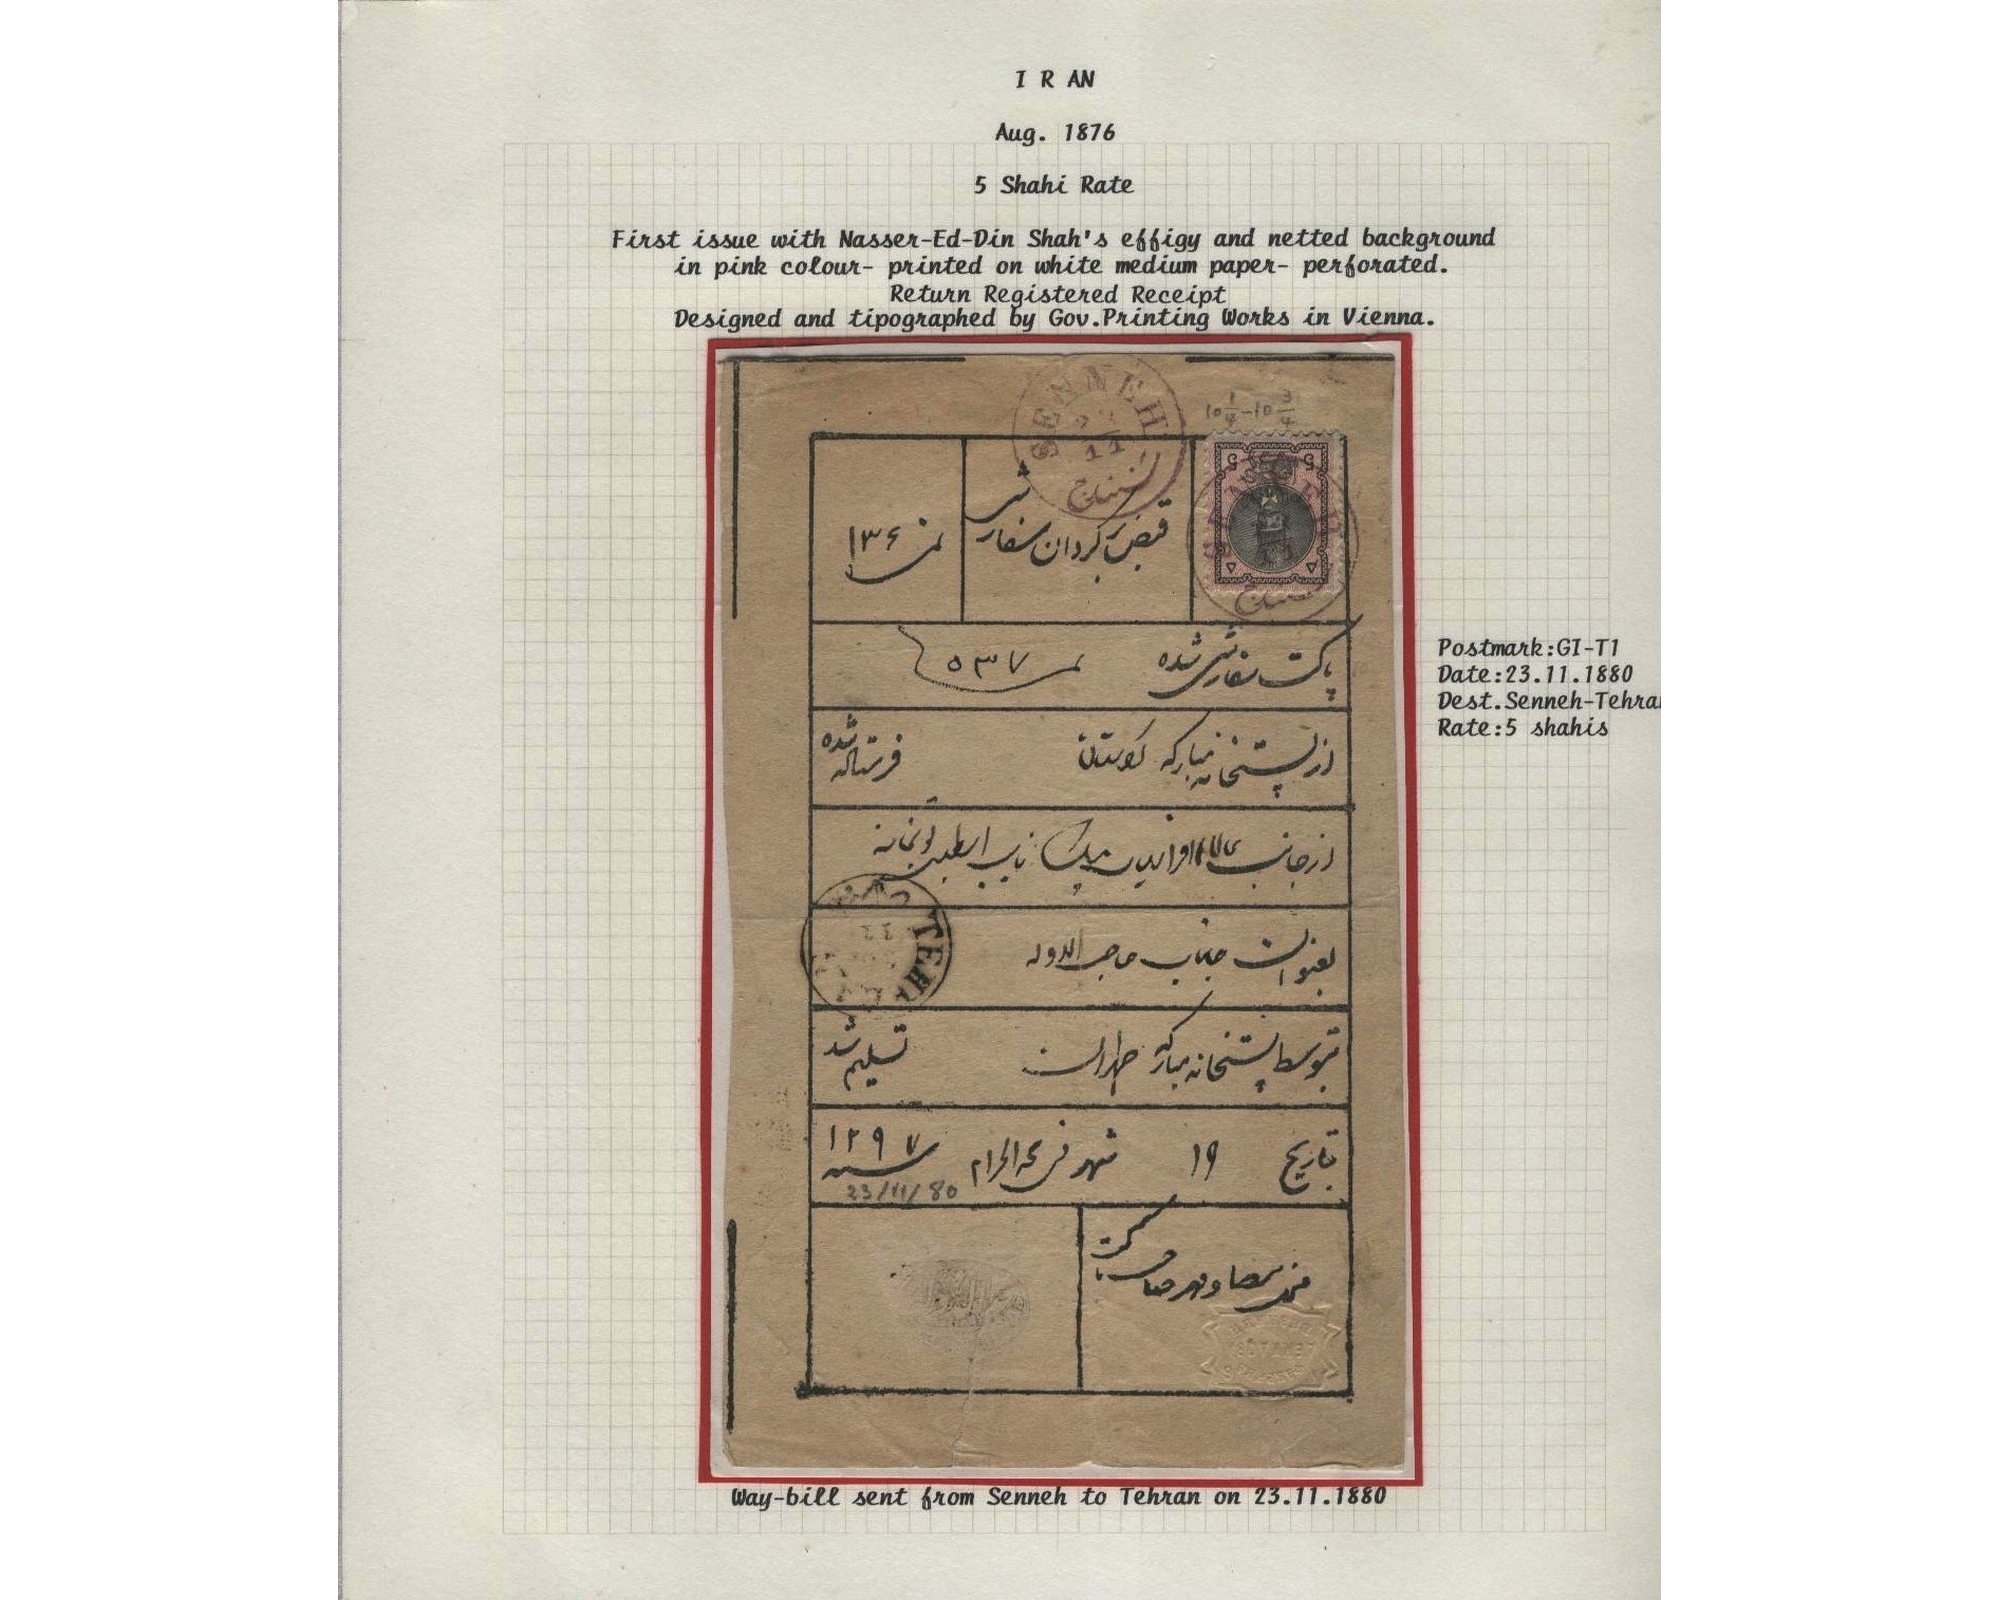 I R AN
Aug. 1876
5 Shahi Rate
First issue with Nasser-Ed-Din Shah's effigy and netted background
in pink colour- printed on white medium paper- perforated.
Return Registered Receipt
Designed and tipographed by Gov.Printing Works in Vienna.
SENNEH
11
سنندج
10 1/4 - 10 3/4
5 5
قبض برگردان سفارشی
نمره ۱۳۶
پاکت سفارشی شده نمره ۵۳۷
از پستخانه مبارکه کردستان فرستاده شده
از جانب
بعنوان جناب حاجب الدوله
TEH
توسط پستخانه مبارکه طهران تسلیم شد
بتاریخ ۱۹ شهر ذی حجه الحرام سنه ۱۲۹۷
23/11/80
امضا و مهر صاحب پاکت
Postmark:GI-T1
Date:23.11.1880
Dest.Senneh-Tehra
Rate:5 shahis
Way-bill sent from Senneh to Tehran on 23.11.1880